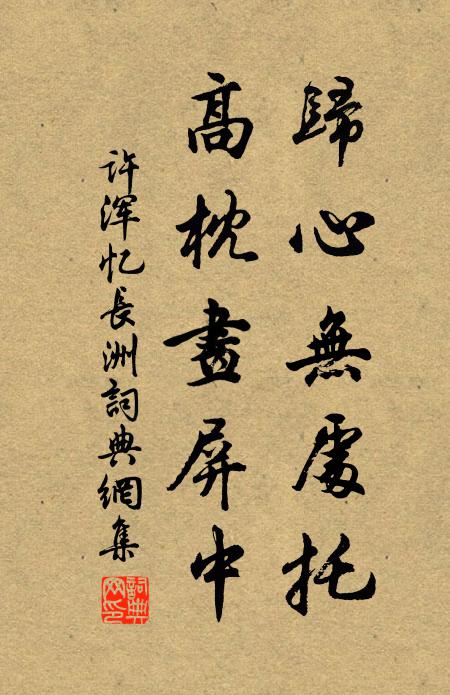 歸心無處托
高枕畫屏中
许浑忆長洲詞典網集
詞典网印